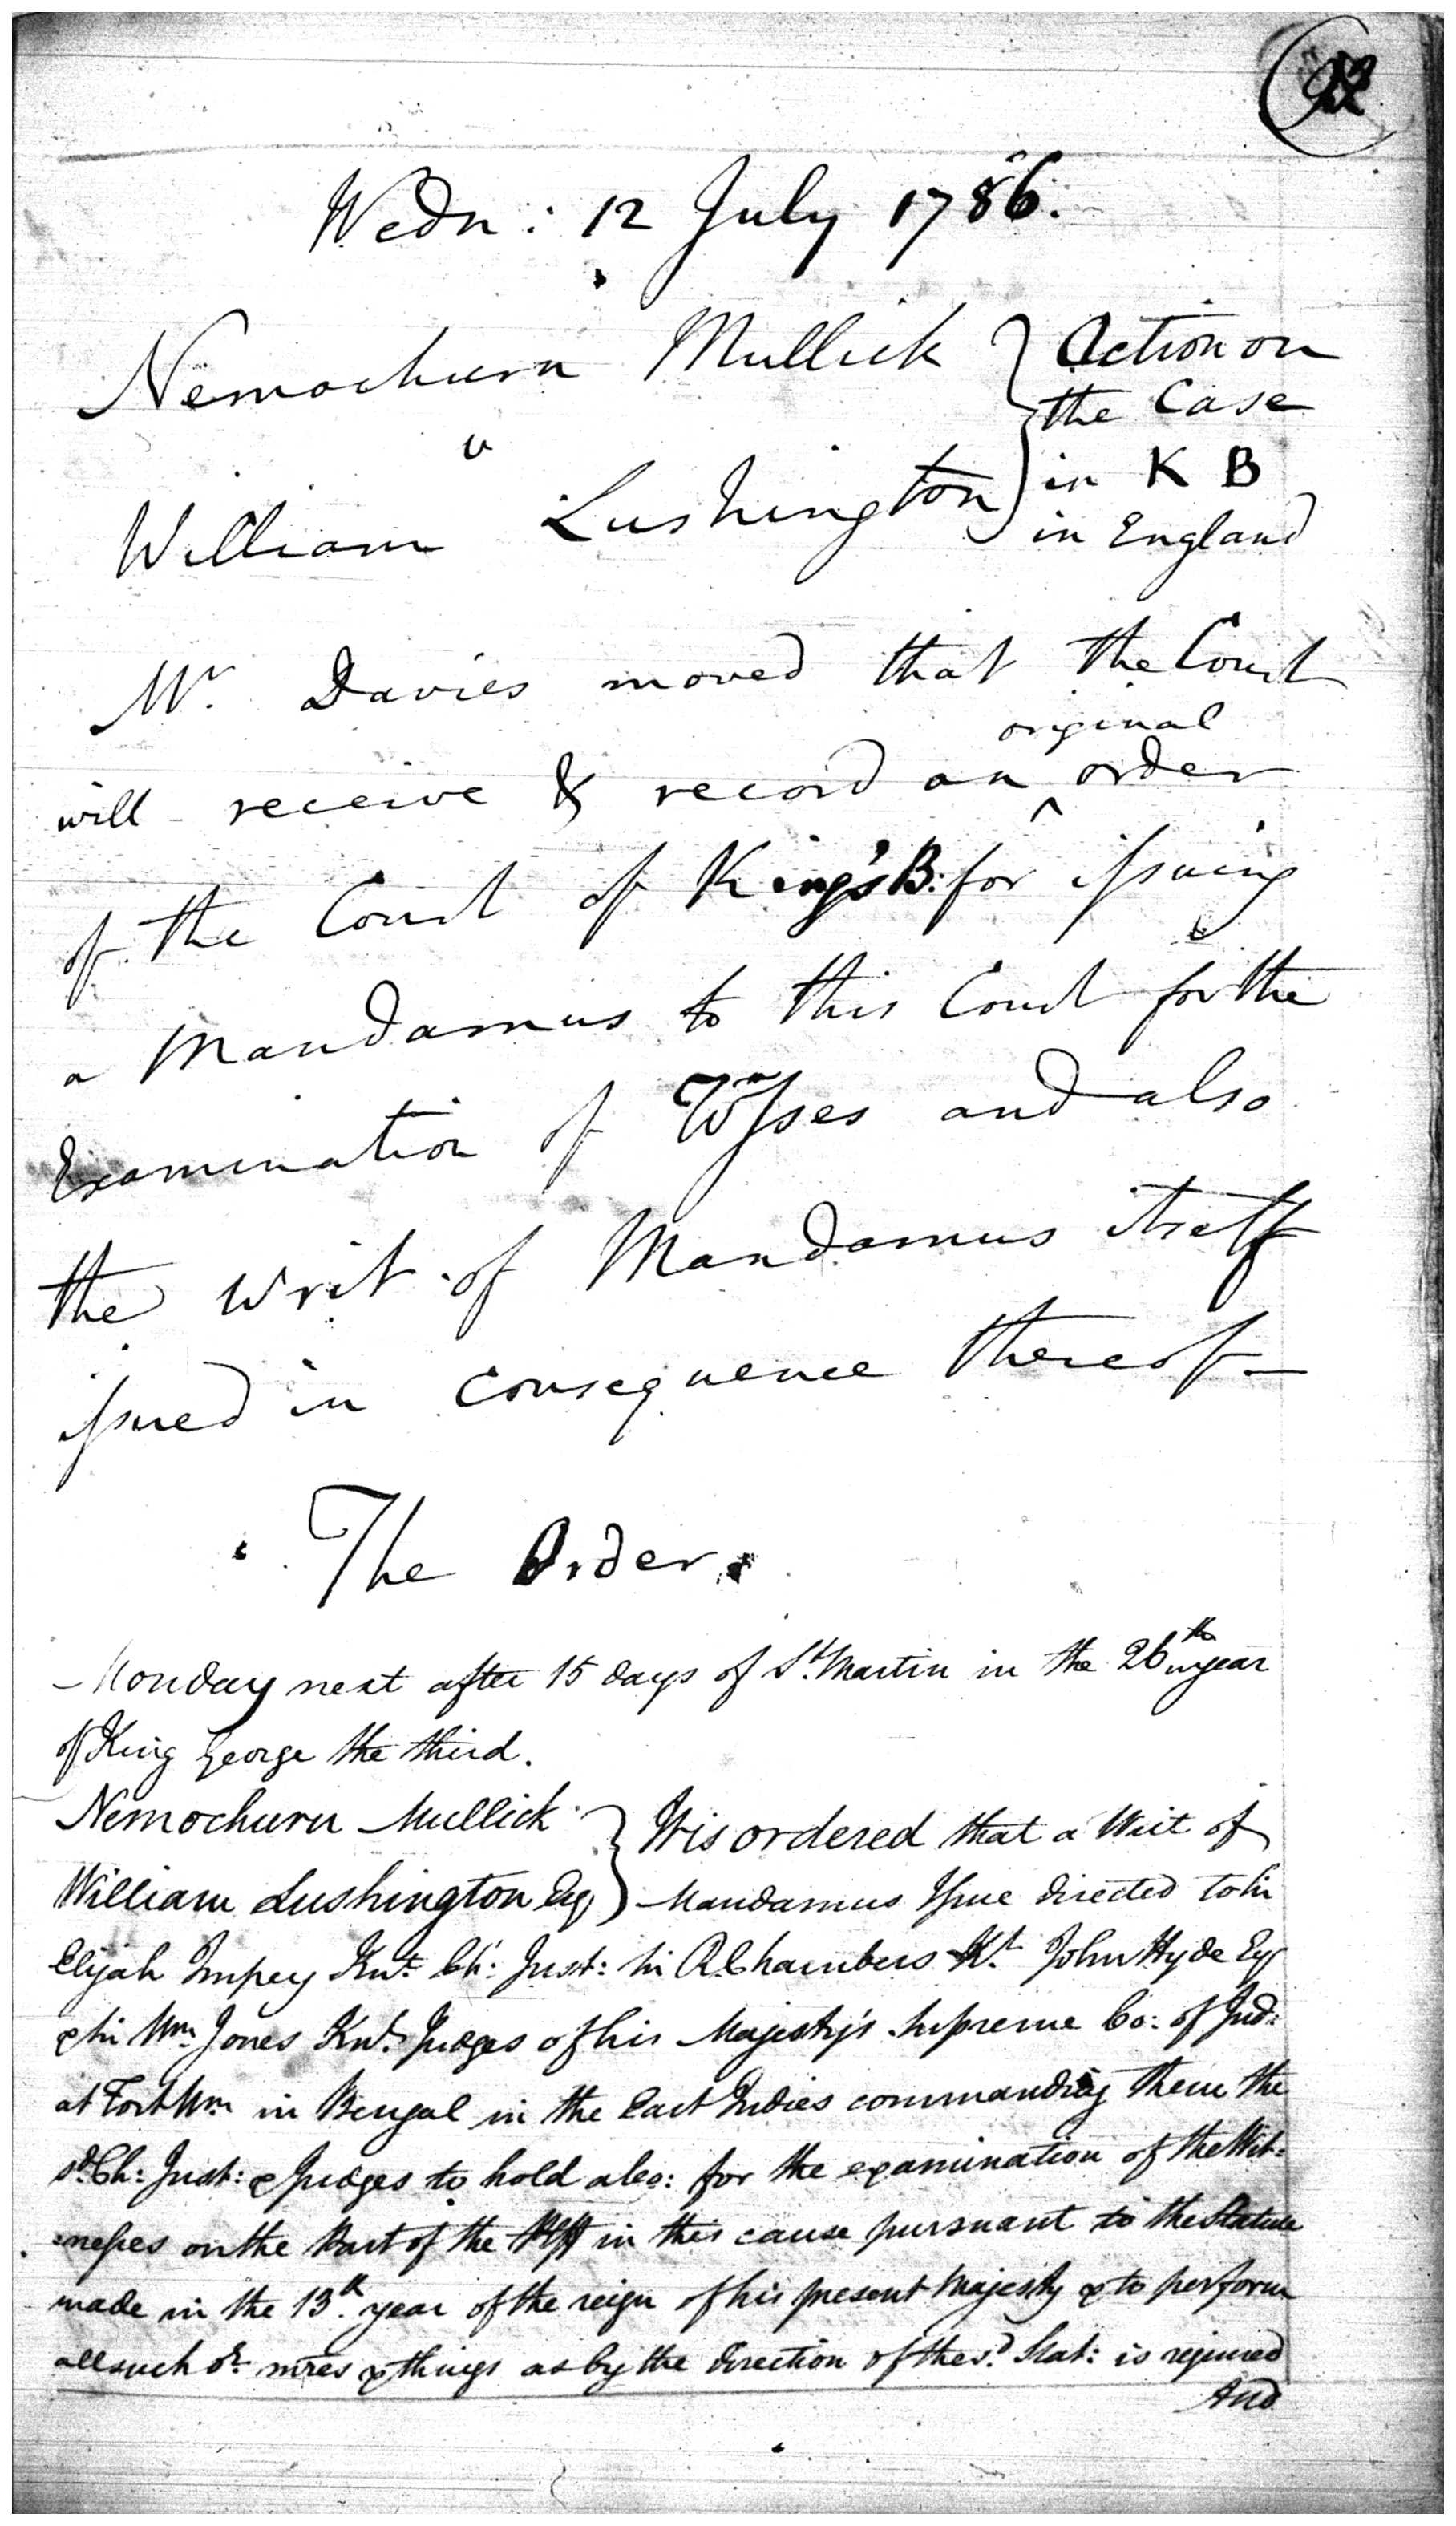 Wedn: 12 July 1786.
Nemochurn Mullick } Action on
the Case
v
William Lushington } in K B
in England
Mr. Davies moved that the Court
original
will receive & record an ^ order
of the Court of King's B: for issuing
a Mandamus to this Court for the
Examination of Wnsses and also
the Writ of Mandamus itself
issued in consequence thereof
The Order.
Monday next after 15 days of St. Martin in the 26th year
of King George the third.
Nemochurn Mullick } It is ordered that a Writ of
William Lushington Esq } Mandamus Issue directed to Sir
Elijah Impey Knt. Ch: Just: Sir R. Chambers Kt. John Hyde Esq
& Sir Wm. Jones Knt. Judges of his Majesty's Supreme Co: of Jud:
at Fort Wm in Bengal in the East Indies commanding them the
sd. Ch: Just: & Judges to hold a for the examination of the Wit=
=nesses on the Part of the Plff in this cause pursuant to the Statute
made in the 13th. year of the reign of his present Majesty & to perform
all such or. mres & things as by the direction of the sd. Stat: is required
And